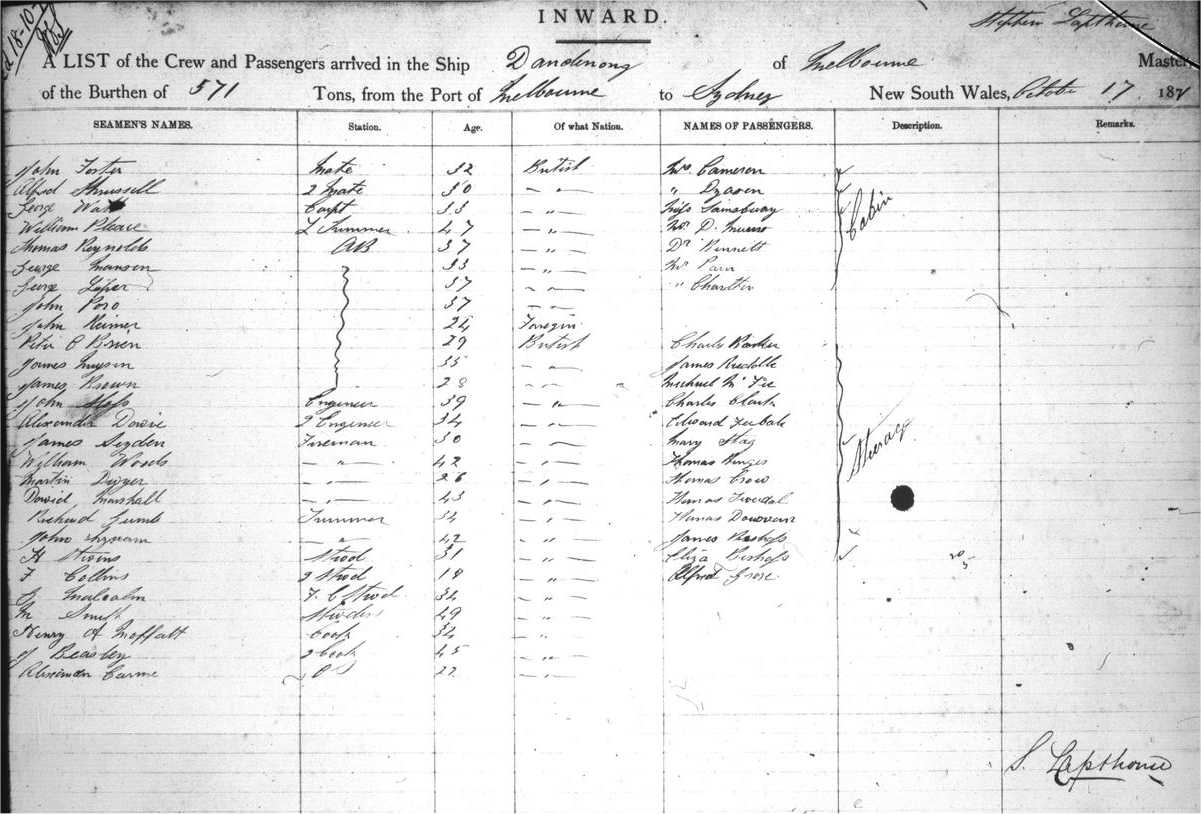 INWARD.
Stephen Lapthorne
A LIST of the Crew and Passengers arrived in the Ship Dandenong of Melbourne Master
of the Burthen of 571 Tons, from the Port of Melbourne to Sydney New South Wales, October 17 187
SEAMEN'S NAMES. Station. Age. Of what Nation. NAMES OF PASSENGERS. Description. Remarks.
John Foster Mate 32 British Mrs Cameron
Alfred Thrussell 2 Mate 30 — " — "
George Carpt 33 — " — Miss Sainsbury Cabin
William Pleace L Trimmer 47 — " — Mr D. Munro
Thomas Reynolds AB 37 — " — Dr Kennett
George Manson 33 — " — Mr
George 37 — " — "
John 37 — " —
John Reimer 24 Foregin
Peter O Brien 29 British Charles
James 35 — " — James Ruddle
James Brown 28 — " — Michael McFee
John Engineer 39 — " — Charles Clark
Alexander Dowie 2 Engineer 34 — " — Edward
James Fireman 30 — " — Mary Steerage
William Woods — " — 42 — " — Thomas
Martin Dwyer — " — 26 — " — Thomas Crow
David Marshall — " — 43 — " — Thomas
Richard Gumb Trimmer 34 — " — Thomas Donovan
John — " — 42 — " — James Bishop
H Stevens Stwd 31 — " — Eliza Bishop
F Collins 2 Stwd 18 — " — Alfred Grose
Malcolm F. C Stwd 34 — " —
M Smith 49 — " —
Henry A Moffatt Cook 34 — " —
J Beasley 2 Cook 45 — " —
Alexander OS 22 — " —
S. Lapthorne